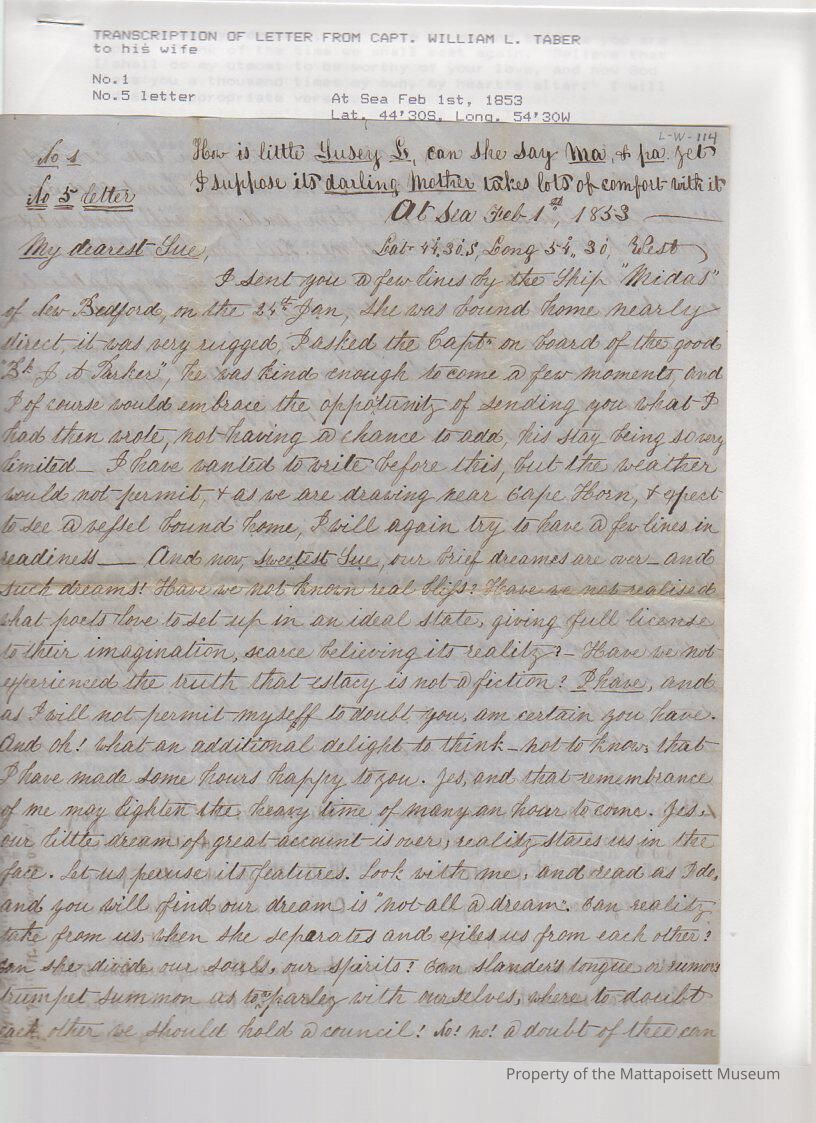 TRANSCRIPTION OF LETTER FROM CAPT. WILLIAM L. TABER
to his wife
No.1
No.5 letter
At Sea Feb 1st, 1853
Lat. 44'30S, Long. 54'30W
L-W-114
No 1
How is little Susey L, can she say Ma, & pa. yet
No 5 letter
I suppose its darling Mother takes lots of comfort with it
At Sea Feb 1st, 1853
My dearest Sue,
Lat 44.30 S, Long 54.. 30, West
I sent you a few lines by the Ship "Midas"
of New Bedford, on the 24th Jan, she was bound home nearly
direct, it was very rugged, I asked the Captn on board of the good
"Bk J A Parker", he was kind enough to come a few moments, and
I of course would embrace the oppotunity of sending you what I
had then wrote, not having a chance to add, his stay being so very
limited_ I have wanted to write before this, but the weather
would not permit, & as we are drawing near Cape Horn, & expect
to see a vessel bound home, I will again try to have a few lines in
readiness__ And now, sweetest Sue, our brief dreames are over_ and
such dreams! Have we not known real bliss? Have we not realised
what poets love to set up in an ideal state, giving full license
to their imagination, scarce believing its reality?_ Have we not
experienced the truth that extacy is not a fiction? I have, and
as I will not permit myself to doubt you, am certain you have.
And oh! what an additional delight to think_ not to know, that
I have made some hours happy to you. Yes, and that remembrance
of me may lighten the heavy time of many an hour to come. Yes,
our little dream of great account is over, reality stares us in the
face. Let us peruse its features. Look with me, and read as I do,
and you will find our dream is "not all a dream". Can reality
take from us, when she separates and exiles us from each other?
can she divide our souls, our spirits? Can slander's tongue or rumors
trumpet summon us to a parley with ourselves, where to doubt
each other we should hold a council! No! no! a doubt of thee can
Property of the Mattapoisett Museum